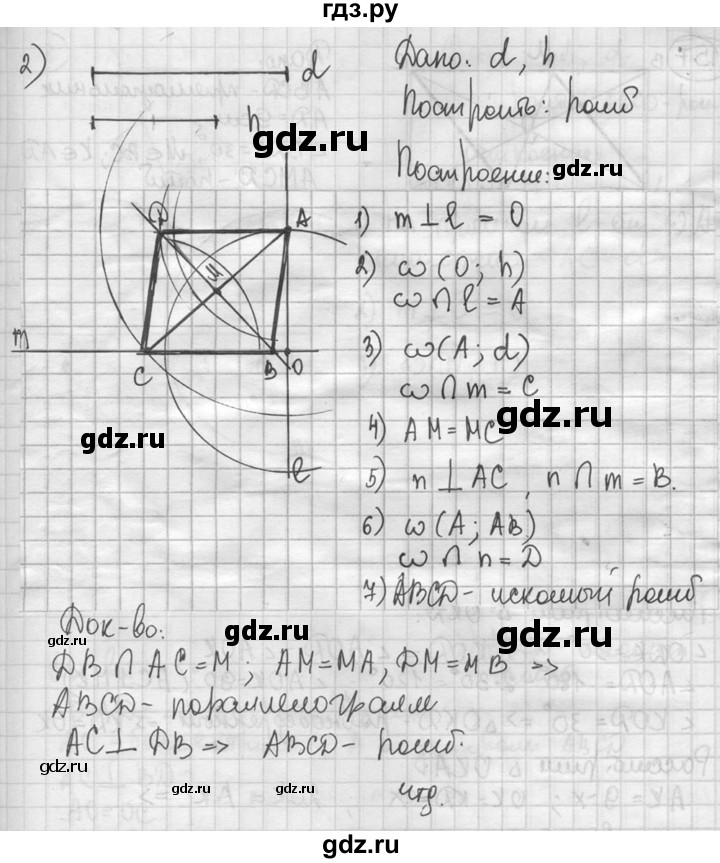 гдз.ру
2)
d
h
Дано: d, h
Построить: ромб
Построение:
1) m ⊥ l = O
2) ω (O; h)
ω ∩ l = A
3) ω (A; d)
ω ∩ m = C
4) AM = MC
5) n ⊥ AC, n ∩ m = B.
6) ω (A; AB)
ω ∩ n = D
7) ABCD - искомый ромб
D
A
M
m
C
B
O
l
Док-во:
DB ∩ AC = M; AM = MA, DM = MB =>
ABCD - параллелограмм
AC ⊥ DB => ABCD - ромб.
чтд.
gdz.ru
gdz.ru
gdz.ru
gdz.ru
gdz.ru
gdz.ru
gdz.ru
gdz.ru
gdz.ru
gdz.ru
gdz.ru
gdz.ru